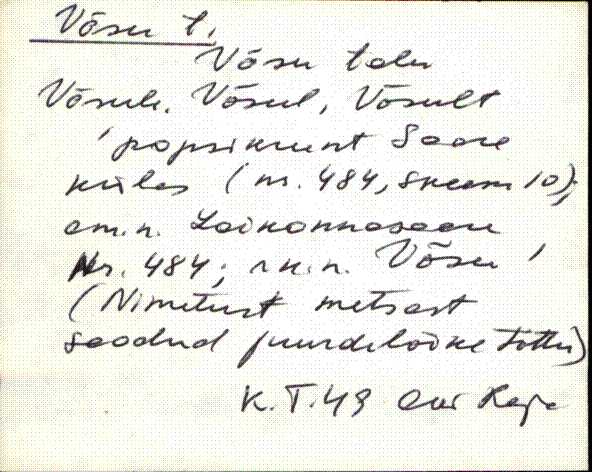 Võsu t.
Võsu talu
Võsule, Võsul, Võsult
'popsikrunt Saare
külas (nr. 484, skeem 10);
am.n. Laikannasaare
Nr. 484; rk.n. Võsu'
(Nimetust metsast
saadud juurdelõike tõttu)
K.T.48